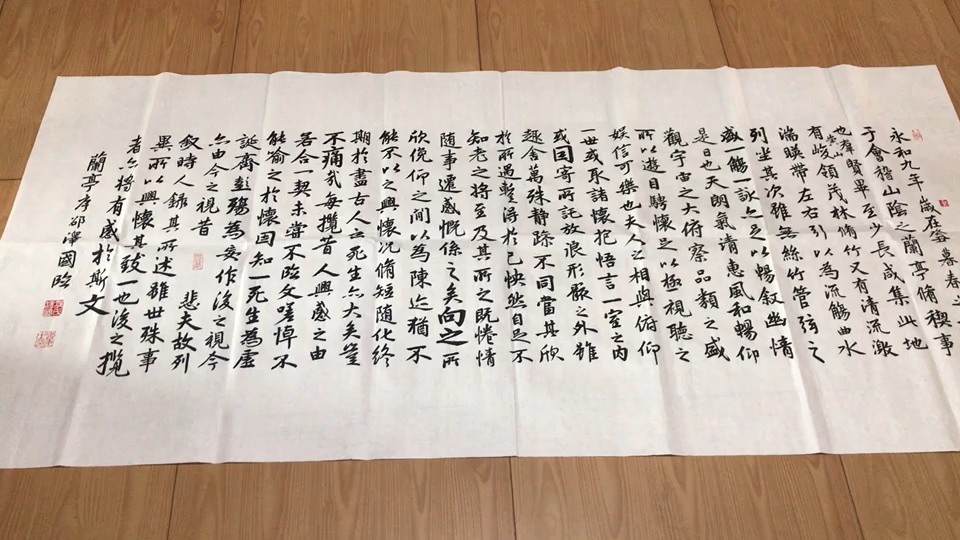 永和九年歲在癸暮春之
于會稽山陰之蘭亭脩稧事
也羣賢畢至少長咸集此地
崇山
有峻領茂林脩竹又有清流激
湍暎帶左右引以為流觴曲水
列坐其次雖無絲竹管弦之
盛一觴一詠亦足以暢叙幽情
是日也天朗氣清惠風和暢仰
觀宇宙之大俯察品類之盛
所以遊目騁懷足以極視聽之
娛信可樂也夫人之相與俯仰
一世或取諸懷抱悟言一室之內
或因寄所託放浪形骸之外雖
趣舍萬殊静躁不同當其欣
於所遇蹔得於己怏然自足不
知老之將至及其所之既惓情
隨事遷感慨係之矣向之所
欣俛仰之間以為陳迹猶不
能不以之興懷况脩短隨化終
期於盡古人云死生亦大矣豈
不痛哉每攬昔人興感之由
若合一契未嘗不臨文嗟悼不
能喻之於懷固知一死生為虛
誕齊彭殤為妄作後之視今
亦由今之視昔 悲夫故列
叙時人錄其所述雖世殊事
異所以興懷其致一也後之攬
者亦將有感於斯文
蘭亭序邵澤國臨